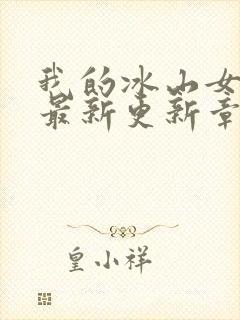 我的冰山女
最新更新章
皇小祥